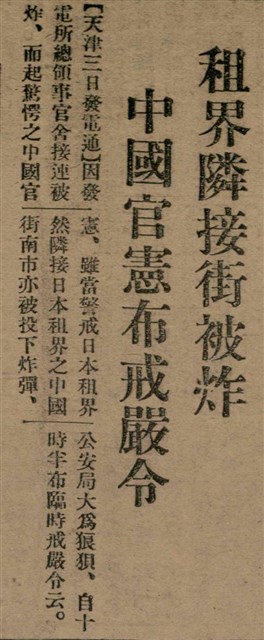 租界隣接街被炸
中國官憲布戒嚴令
【天津三日發電通】因發
電所總領事官舍接連被
炸、而起驚愕之中國官
憲、雖當警戒日本租界
然隣接日本租界之中國
街南市亦被投下炸彈、
公安局大爲狼狽、自十
時半布臨時戒嚴令云。